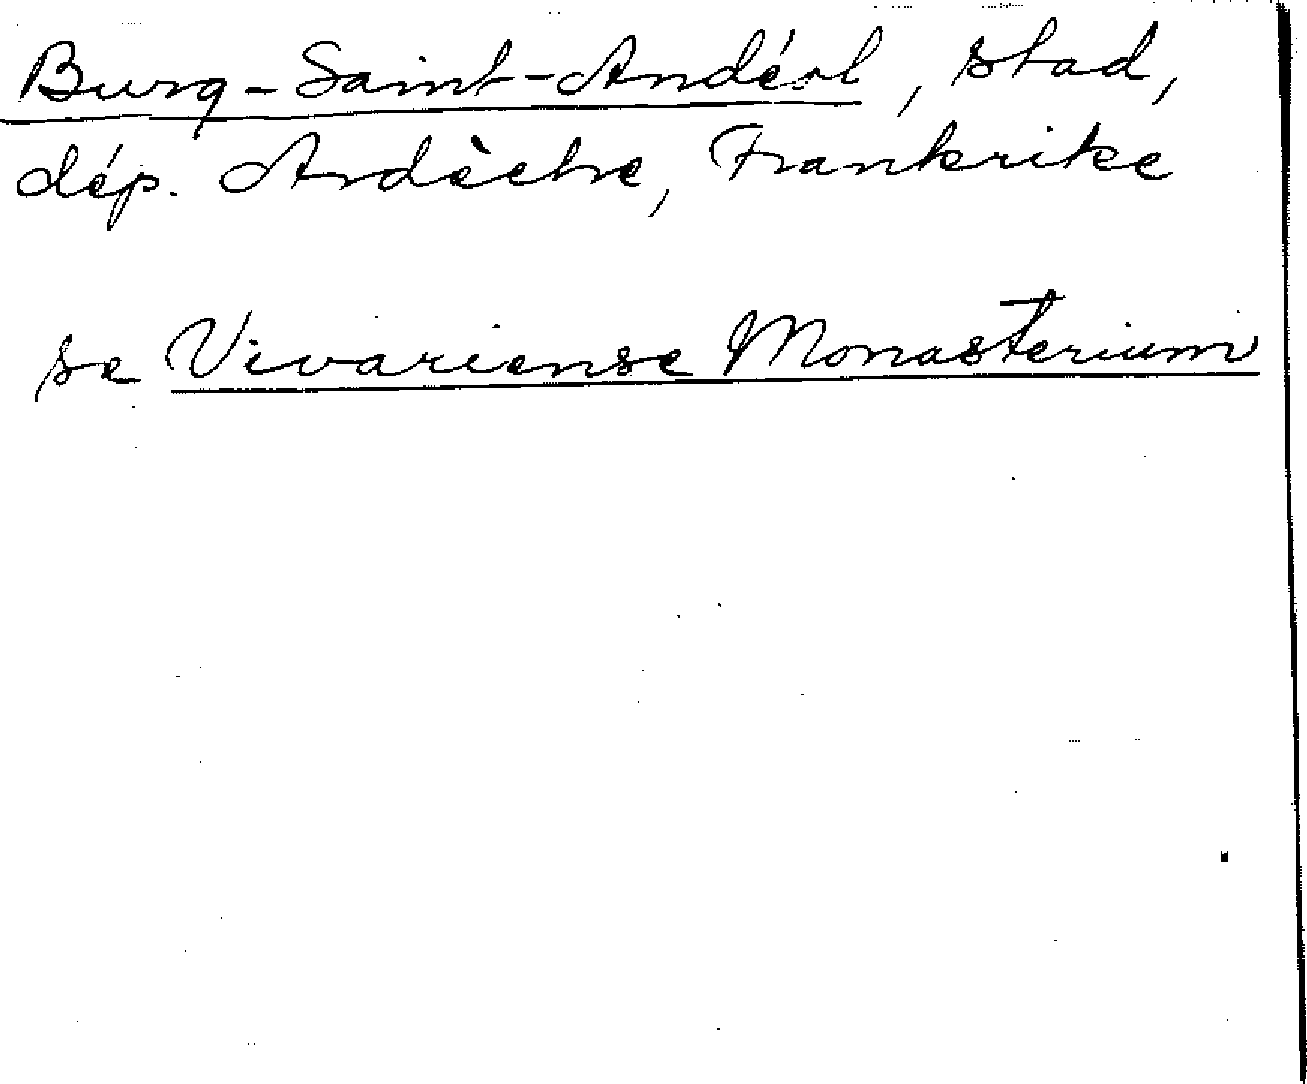 Burg-Saint-Andéol, stad,
dép. Ardèche, Frankrike
se Vivariense Monasterium